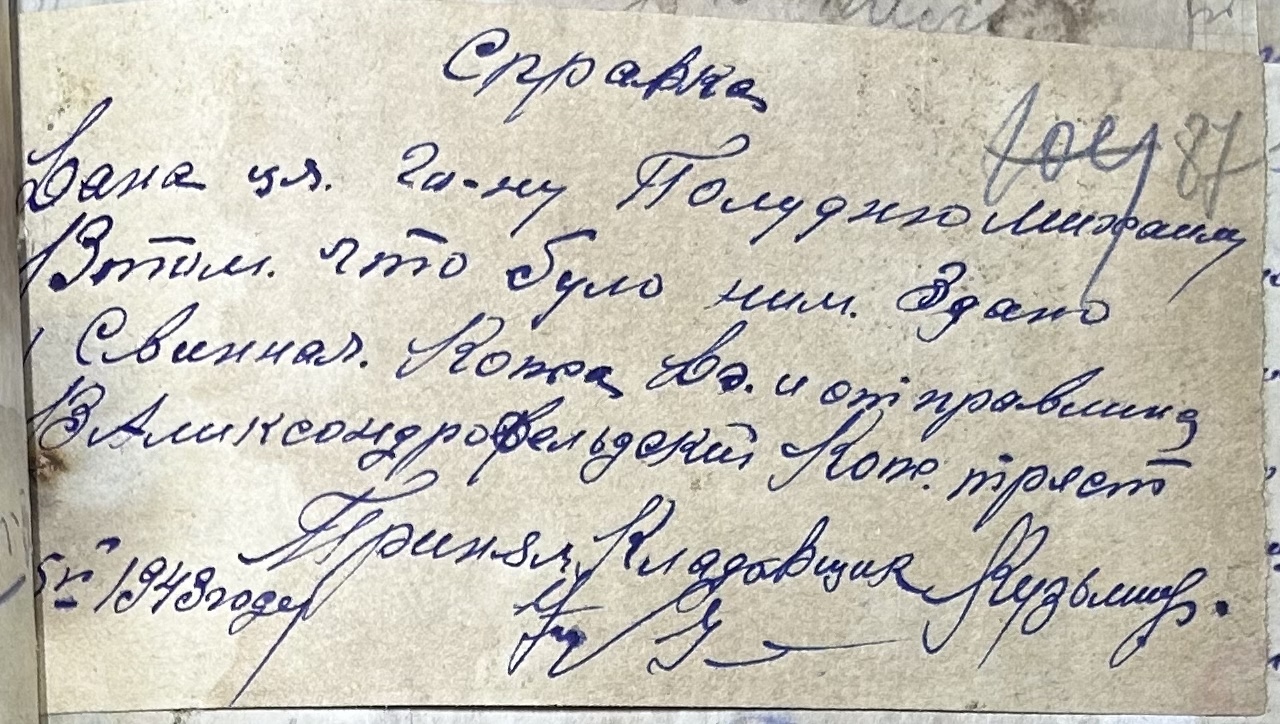 Справка
87
Дана ця. Гр-ну Полудню Михаилу
В том. что було ним. Здано
1 Свинная. Кожа и отправлина
В Аликсондрофельдский Кож. тряст
Принял Кладовщик Кузьмин
1943 годе